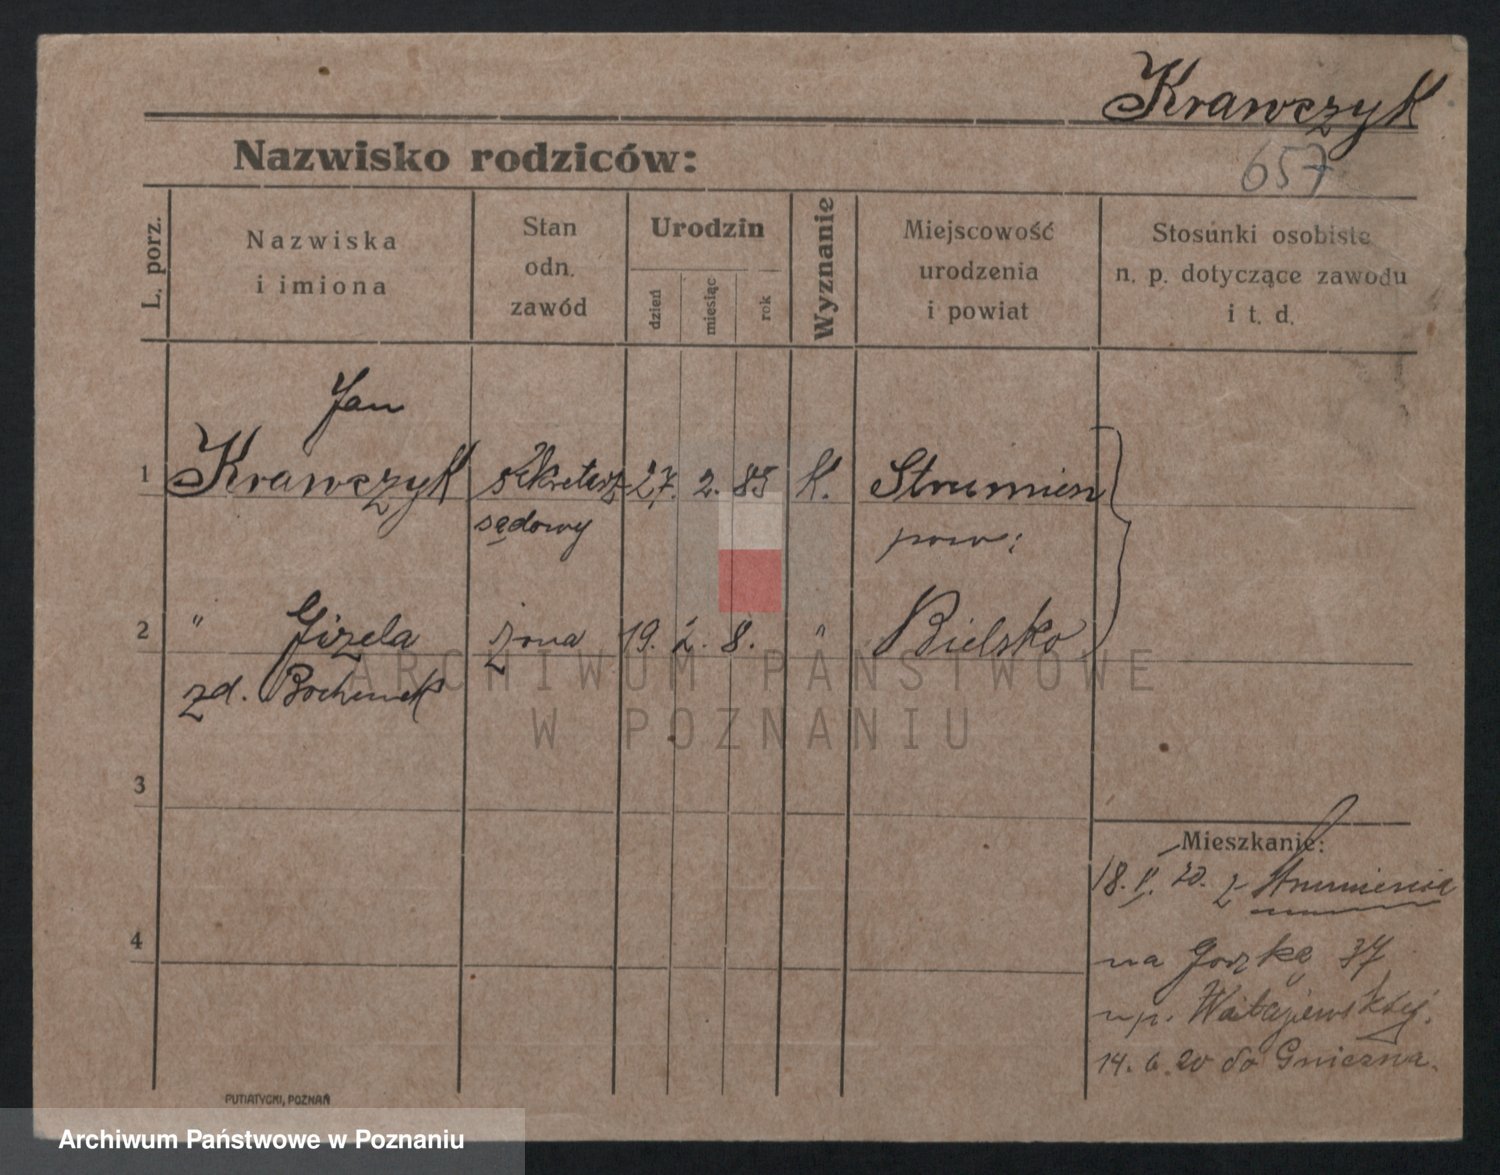 Krawczyk
657
Nazwisko rodziców:
L. porz.
Nazwiska
i imiona
Stan
odn.
zawód
Urodzin
dzień
miesiąc
rok
Wyznanie
Miejscowość
urodzenia
i powiat
Stosunki osobiste
n. p. dotyczące zawodu
i t. d.
Jan
1 Krawczyk sekretarz 27. 2. 85 K. Strumień
sądowy pow:
2 " Gizela żona 19. 2. 8. " Bielsko
zd. Bochenek
3
Mieszkanie:
18. 20. z Strumienia
4
na Gorzką 37
np.
14. 6. 20 do Gniezna.
PUTIATYCKI, POZNAŃ
ARCHIWUM PAŃSTWOWE
W POZNANIU
Archiwum Państwowe w Poznaniu